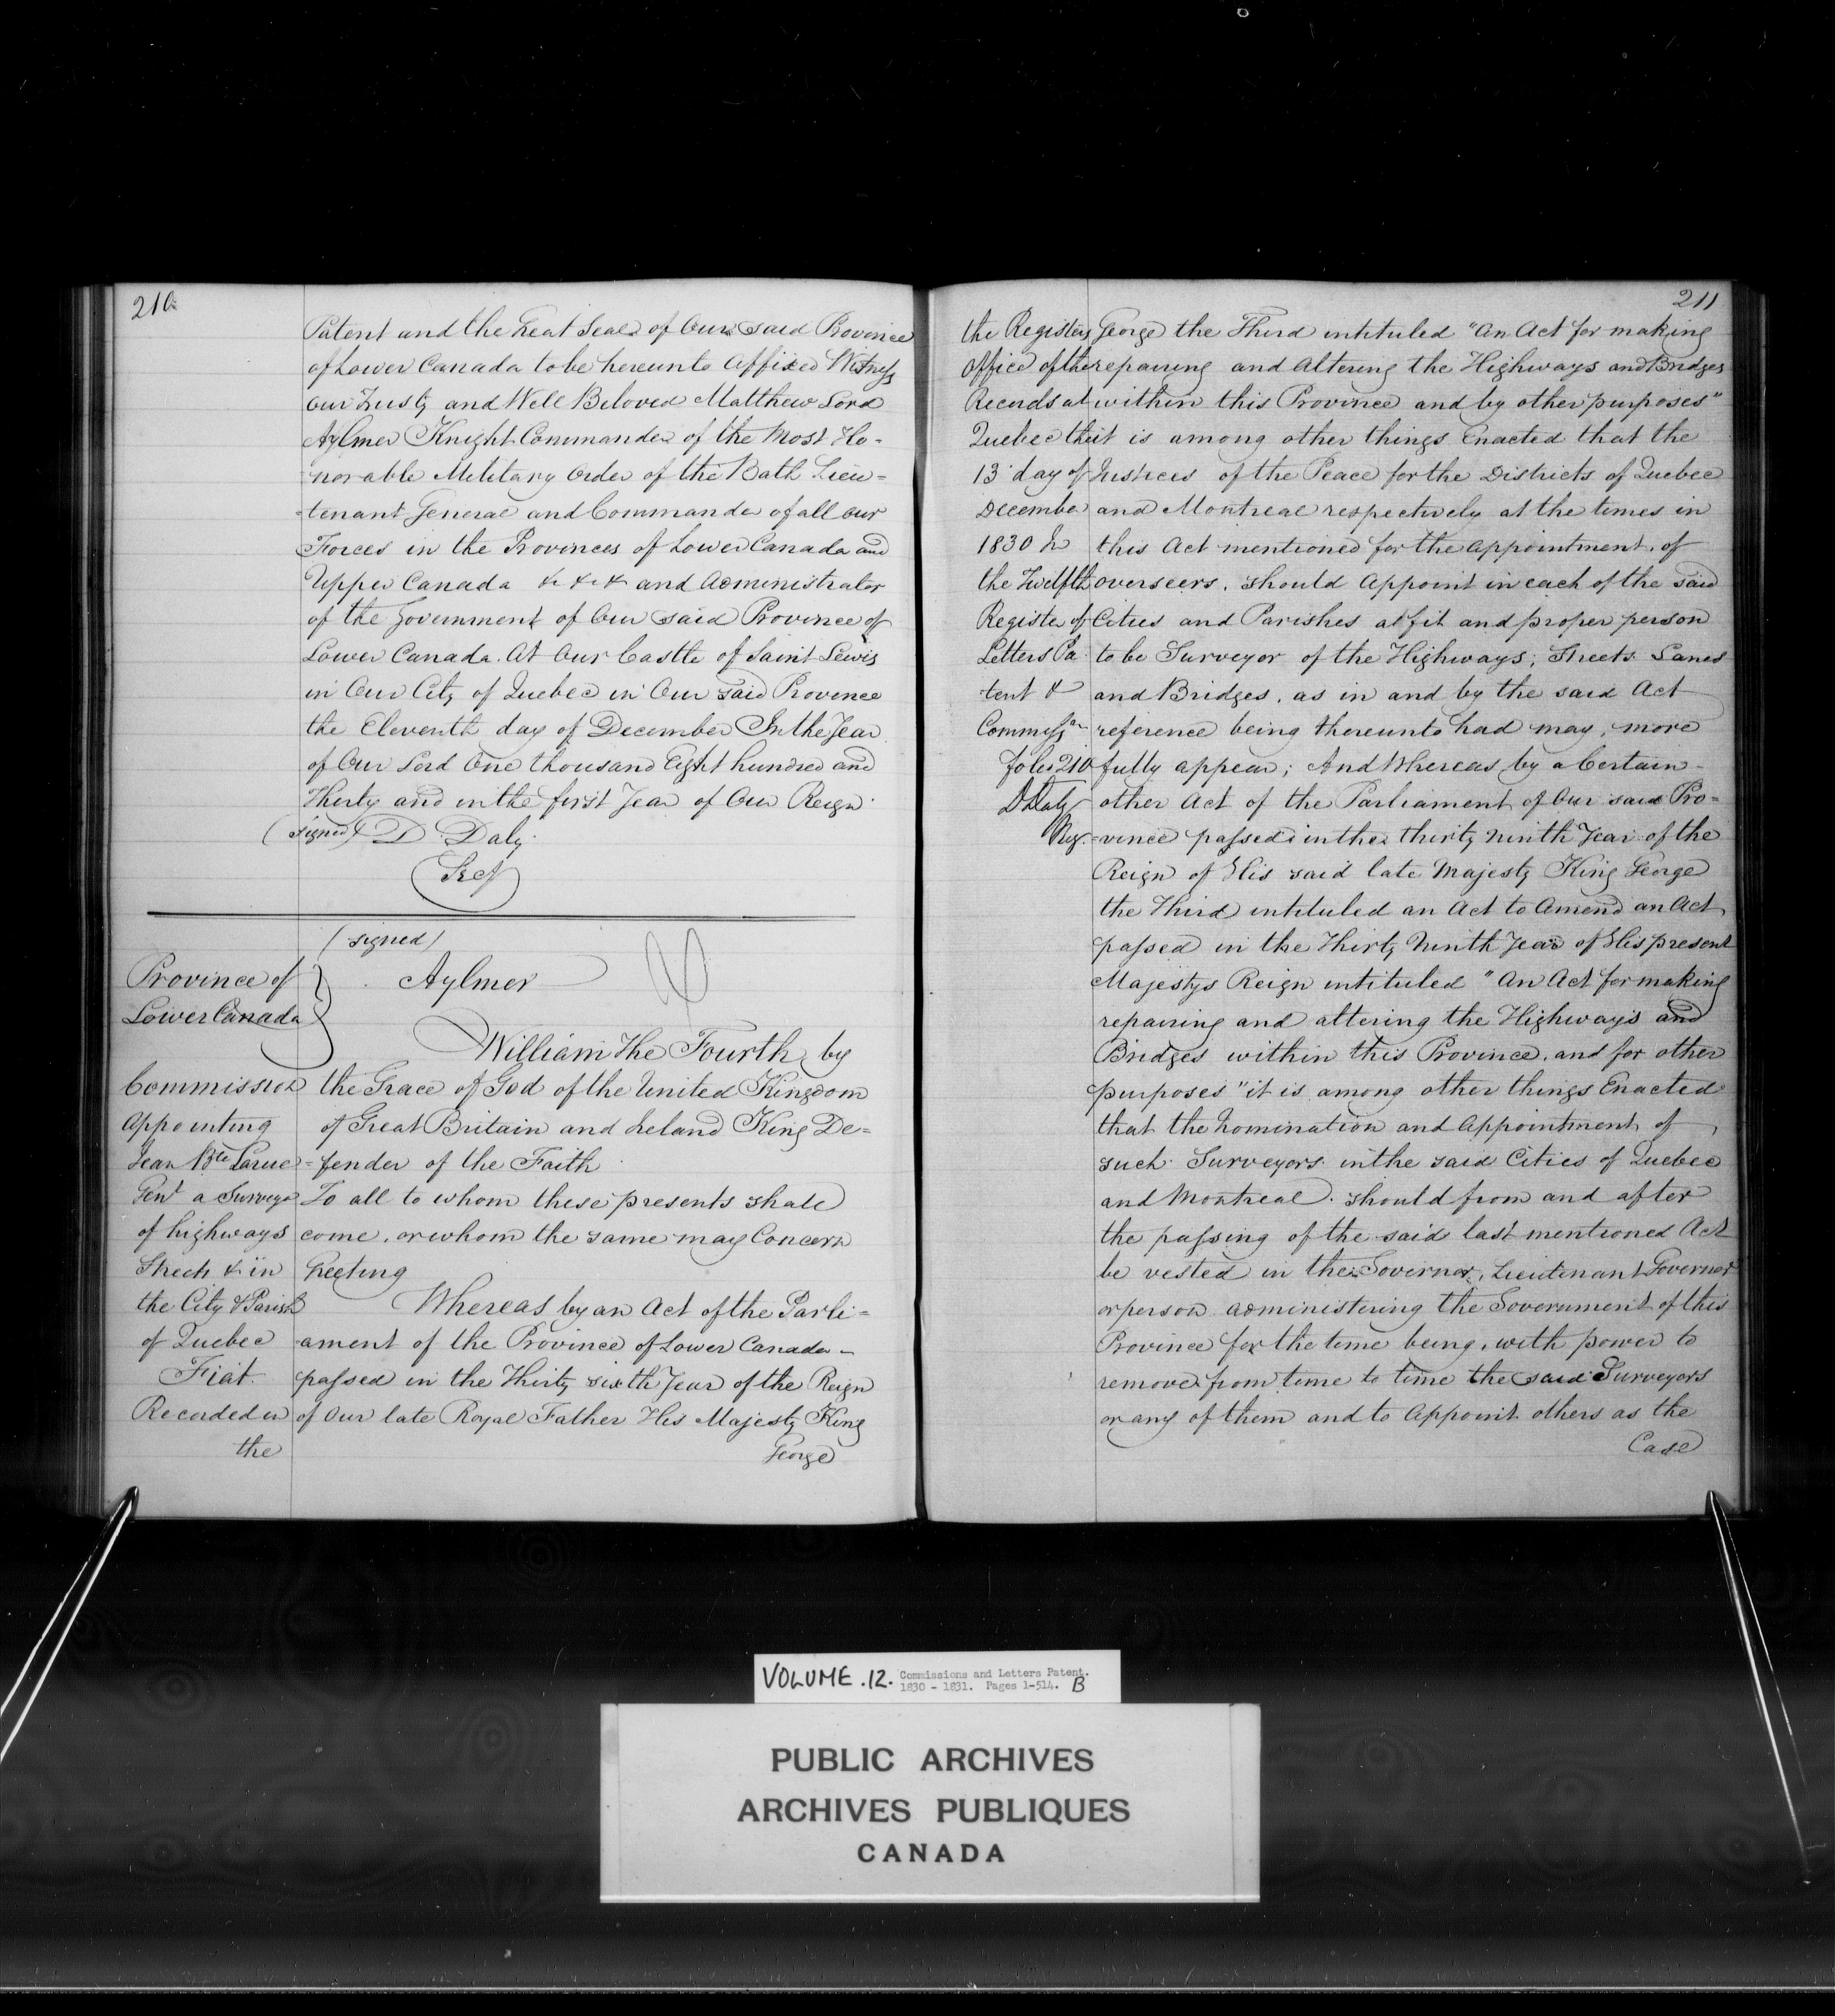 210
Patent and the Great Seal of Our said Province
of Lower Canada to be hereunto affixed Witness
our Trusty and Well Beloved Matthew Lord
Aylmer Knight Commander of the Most Ho-
norable Military Order of the Bath Lieu-
tenant General and Commander of all our
Forces in the Provinces of Lower Canada and
Upper Canada &c &c &c and Administrator
of the Government of Our said Province of
Lower Canada. At Our Castle of Saint Lewis
in Our City of Quebec in Our said Province
the Eleventh day of December In the Year
of Our Lord One thousand Eight hundred and
Thirty and in the first Year of Our Reign.
(signed) D. Daly
Secy
(signed)
Aylmer
Province of
Lower Canada
William The Fourth by
the Grace of God of the United Kingdom
of Great Britain and Ireland King De=
=fender of the Faith
To all to whom these presents shall
come, or whom the same may Concern
Greeting
Whereas by an Act of the Parli=
ament of the Province of Lower Canada
passed in the Thirty sixth Year of the Reign
of Our late Royal Father His Majesty King
George
Commission
Appointing
Jean Bte Larue
Gent a Surveyor
of highways
Streets & in
the City & Parish
of Quebec
Fiat.
Recorded in
the
211
the Registers
Office of the
Records at
Quebec the
13 day of
December
1830 In
the Twelfth
Register of
Letters Pa
tent &
Commissn
folio 210
D Daly
Reg.
George the Third intituled "An Act for making
repairing and Altering the Highways and Bridges
within this Province and by other purposes"
it is among other things Enacted that the
Justices of the Peace for the Districts of Quebec
and Montreal respectively at the times in
this Act mentioned for the appointment of
overseers, should Appoint in each of the said
Cities and Parishes a fit and proper person
to be Surveyor of the Highways; Streets Lanes
and Bridges, as in and by the said Act
reference being thereunto had may, more
fully appear; And Whereas by a Certain
other Act of the Parliament of Our said Pro=
=vince passed in the thirty ninth Year of the
Reign of His said late Majesty King George
the Third intituled an Act to Amend an Act
passed in the Thirty Ninth Year of His present
Majestys Reign intituled "An Act for making
repairing and altering the Highways and
Bridges within this Province, and for other
purposes" it is among other things Enacted
that the Nomination and Appointment of
such Surveyors in the said Cities of Quebec
and Montreal. should from and after
the passing of the said last mentioned Act
be vested in the Governor, Lieutenant Governor
or person administering the Government of this
Province for the time being, with power to
remove from time to time the said Surveyors
or any of them and to Appoint others as the
Case
VOLUME .12. Commissions and Letters Patent.
1830 - 1831. Pages 1-514. B
PUBLIC ARCHIVES
ARCHIVES PUBLIQUES
CANADA